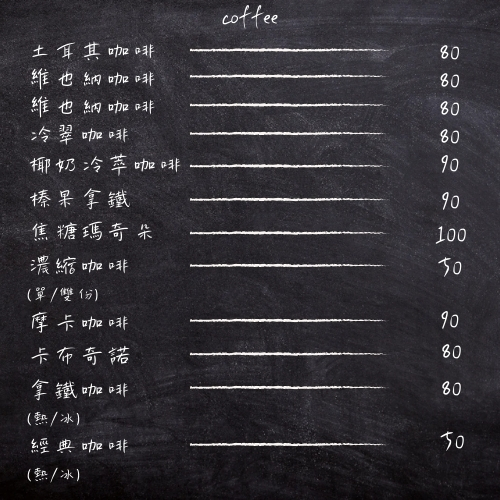 coffee
土耳其咖啡 80
維也納咖啡 80
維也納咖啡 80
冷翠咖啡 80
椰奶冷萃咖啡 90
榛果拿鐵 90
焦糖瑪奇朵 100
濃縮咖啡 50
(單/雙份)
摩卡咖啡 90
卡布奇諾 80
拿鐵咖啡 80
(熱/冰)
經典咖啡 50
(熱/冰)